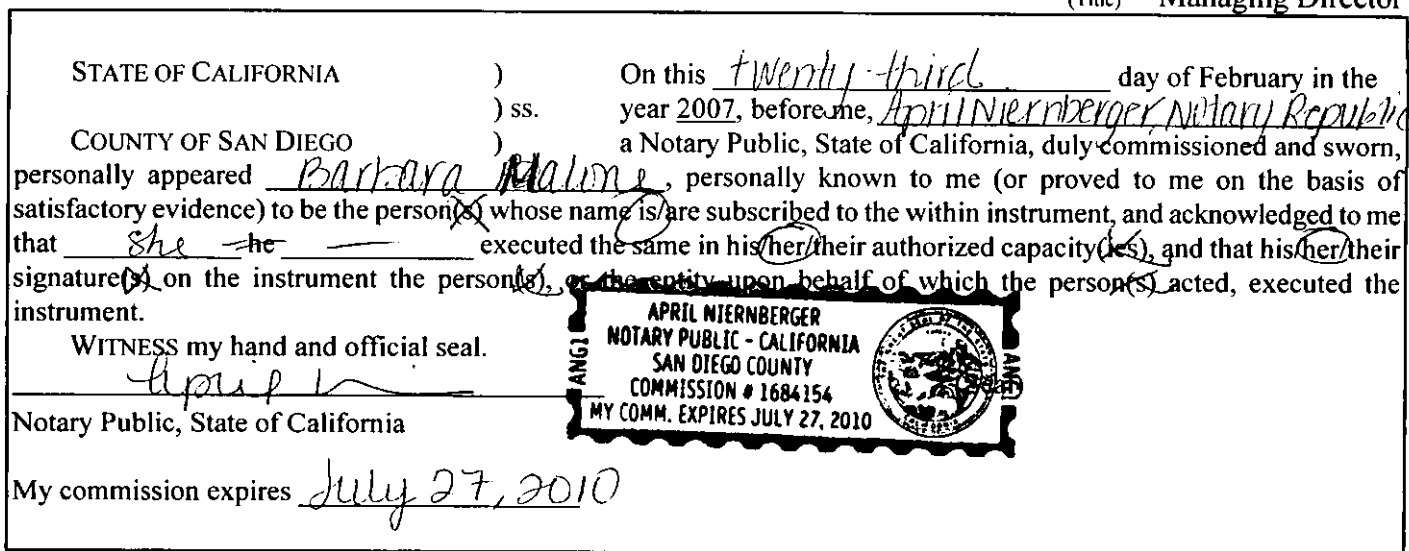 (Title) Managing Director
STATE OF CALIFORNIA ) On this twenty-third day of February in the
) ss. year 2007, before me, April Niernberger, Notary Republic
COUNTY OF SAN DIEGO ) a Notary Public, State of California, duly commissioned and sworn,
personally appeared Barbara Malone, personally known to me (or proved to me on the basis of
satisfactory evidence) to be the person(s) whose name is/are subscribed to the within instrument, and acknowledged to me
that She he executed the same in his/her/their authorized capacity(ies), and that his/her/their
signature(s) on the instrument the person(s), or the entity upon behalf of which the person(s) acted, executed the
instrument.
WITNESS my hand and official seal.
April
Notary Public, State of California
My commission expires July 27, 2010
ANG1
APRIL NIERNBERGER
NOTARY PUBLIC - CALIFORNIA
SAN DIEGO COUNTY
COMMISSION # 1684154
MY COMM. EXPIRES JULY 27, 2010
ANG1